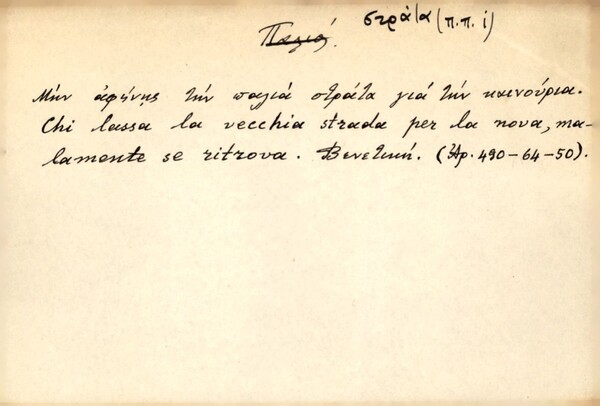 στράτα (π.π. i)
Παλιά.
Μήν ἀφήνῃς τήν παλιά στράτα γιά τήν καινούρια.
Chi lassa la vecchia strada per la nova, ma-
lamente se ritrova. Βενετική. (Ἀρ. 490-64-50).